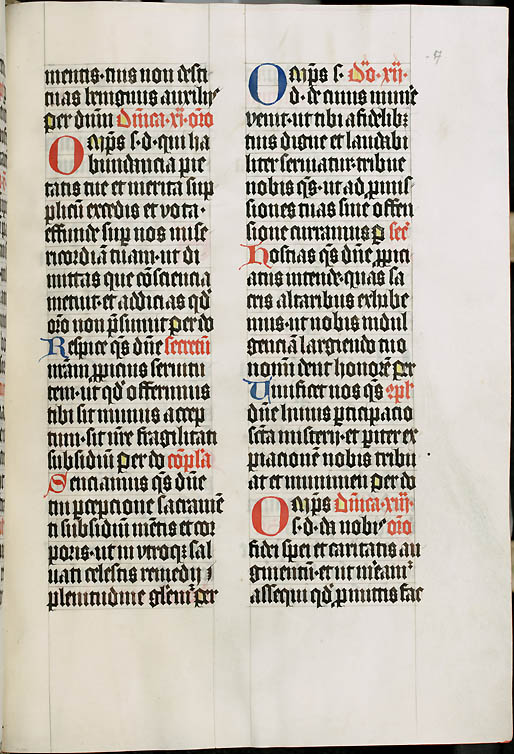 mentis·tuis non desti
tuas benignus auxilijs
per dnm Dnica·xi·oro
Omps s·d·qui ha
bundancia pie
tatis tue et merita sup
plicu excedis et vota·
effunde sup nos mise
ricordia tuam·ut di
mittas que cosciencia
metuit·et addicias qd
oro non psumit per do
Respice qs dne secretu
nram ppicius seruitu
tem·ut qd offerimus
tibi sit munus accep
tum·sit nre fragilitati
subsidiu per do copla
Senciamus qs dne
tui pcepcione sacrame
ti subsidiu metis et cor
poris·ut in vtroq; sal
uati celestis remedij
plenitudine gloriem per
Omps s· Do·xij·
d·de cuius mune
venit·ut tibi a fidelib;
tuis digne et laudabi
liter seruiatur·tribue
nobis qs·ut ad pmis
siones tuas sine offen
sione curramus p sec
Hostias qs dne ppici
atus intende·quas sa
cris altaribus exhibe
mus·ut nobis indul
genciam largiendo tuo
nomini dent honore per
Uiuificet nos qs
dne huius pticipacio
scta misterij·et piter ex
piacione nobis tribu
at et munimen per do
Omps Dnica·xiij·
s·d·da nobis oro
fidei spei et caritatis au
gmentu·et ut meam
assequi qd pmittis fac